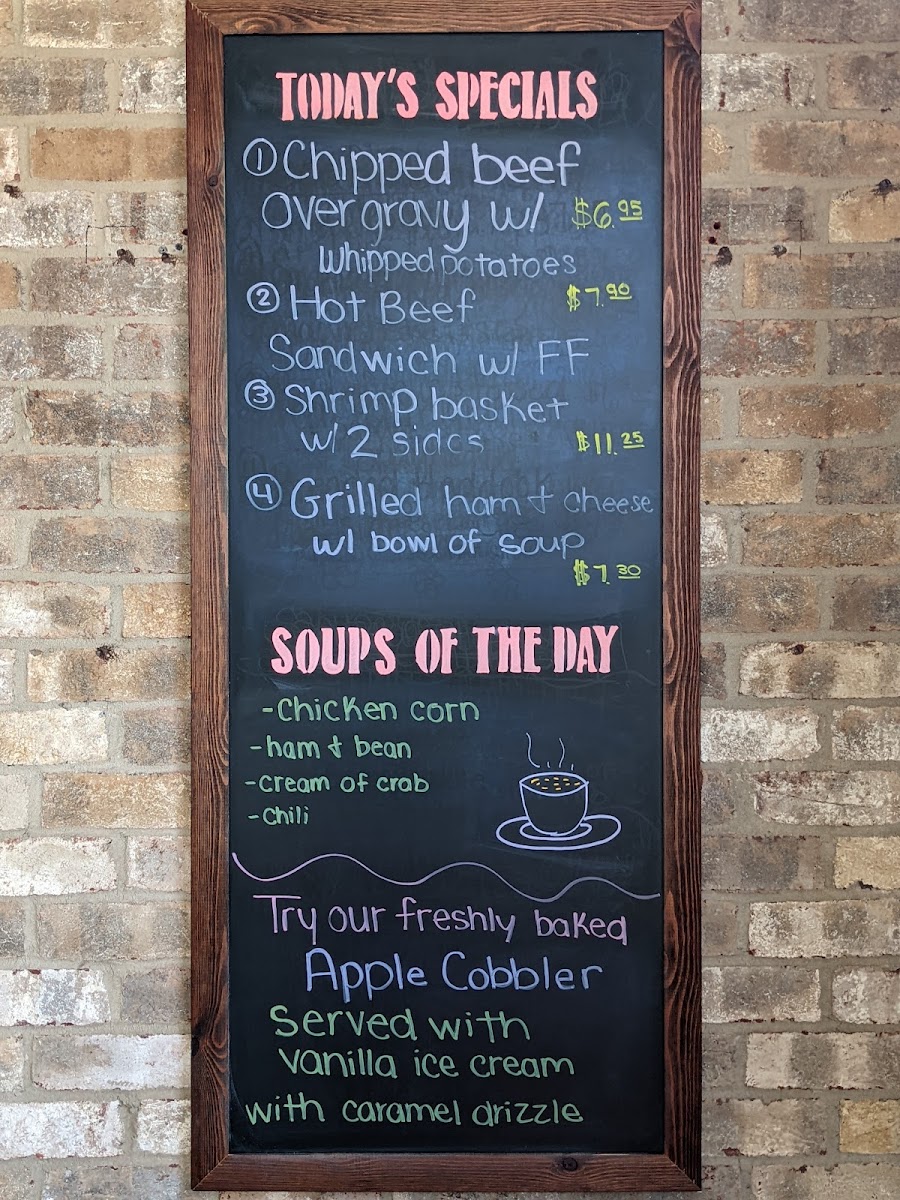 TODAY'S SPECIALS
① Chipped beef
over gravy w/ $6.95
whipped potatoes
② Hot Beef $7.90
Sandwich w/ FF
③ Shrimp basket
w/ 2 sides $11.25
④ Grilled ham + cheese
w/ bowl of soup
$7.30
SOUPS OF THE DAY
-chicken corn
-ham + bean
-cream of crab
-chili
Try our freshly baked
Apple Cobbler
Served with
vanilla ice cream
with caramel drizzle